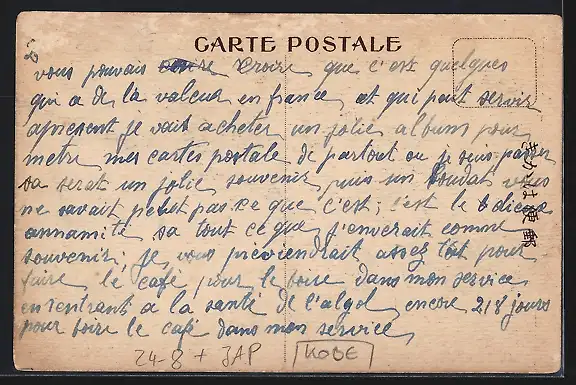 CARTE POSTALE
8
vous pouvais croire que c'est quelques
qui a de la valeur en france, et qui peut servir
apresent je vait acheter un jolie album pour
metre mes cartes postale de partout ou je suis passer
sa serat un jolie souvenir puis un Boudat vous
ne savait petet pas ce que c'est, c'est le dieux
annamite, sa tout ce que j'enverait comme
souvenir, je vous préviendrait assez tôt pour
faire le café, pour le boire dans mon service
en rentrant a la santé de l'algol, encore 218 jours
pour boire le café dans mon service,
24-8 + JAP KOBE
きかは便郵